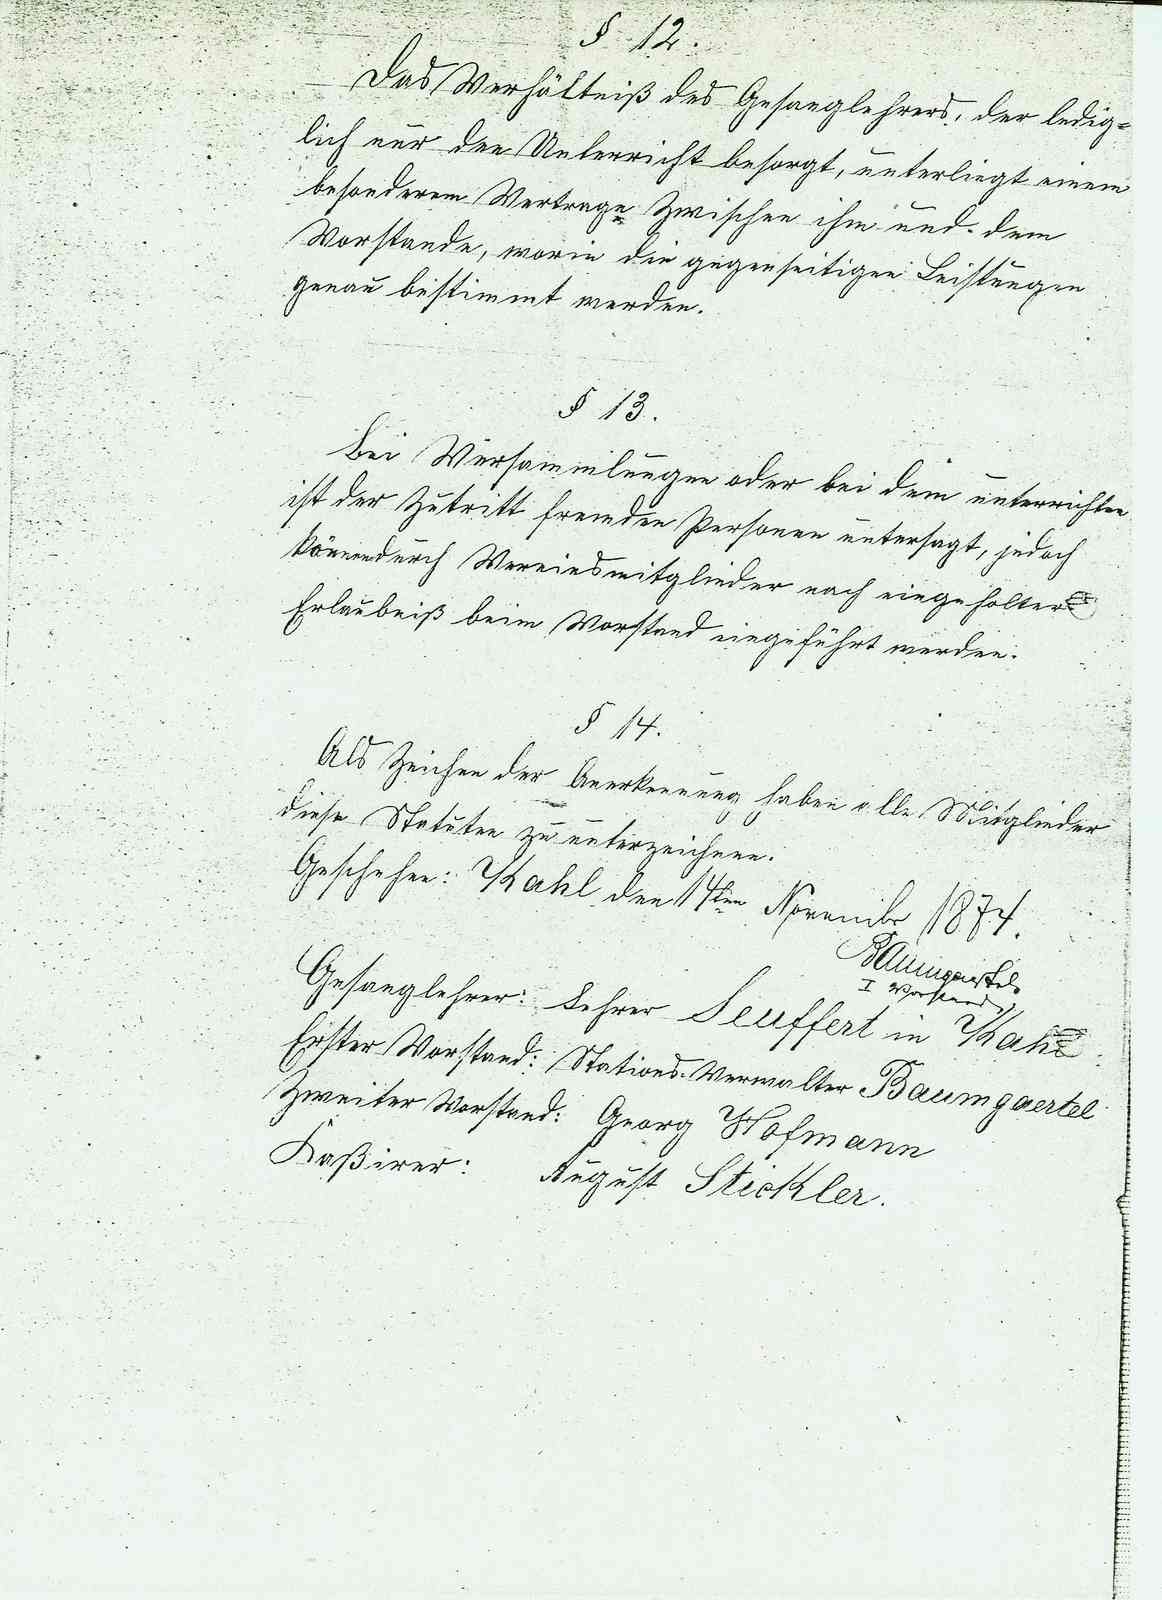 § 12.
Das Verhältniß des Gesanglehrers, der ledig=
lich nur den Unterricht besorgt, unterliegt einem
besonderem Vertrage zwischen ihm und dem
Vorstande, worin die gegenseitigen Leistungen
genau bestimmt werden.
§ 13.
Bei Versammlungen oder bei dem unterrichten
ist der Zutritt fremden Personen untersagt, jedoch
können durch Vereinsmitglieder nach eingeholter
Erlaubniß beim Vorstand eingeführt werden.
§ 14.
Als Zeichen der Anerkennung haben alle Mitglieder
diese Statuten zu unterzeichnen.
Geschehen: Kahl den 14ten November 1874.
Baumgaertel
I Vorstand
Gesanglehrer: Lehrer Seuffert in Kahl
Erster Vorstand: Stations-Verwalter Baumgaertel
Zweiter Vorstand: Georg Hofmann
Kaßirer: August Stickler.